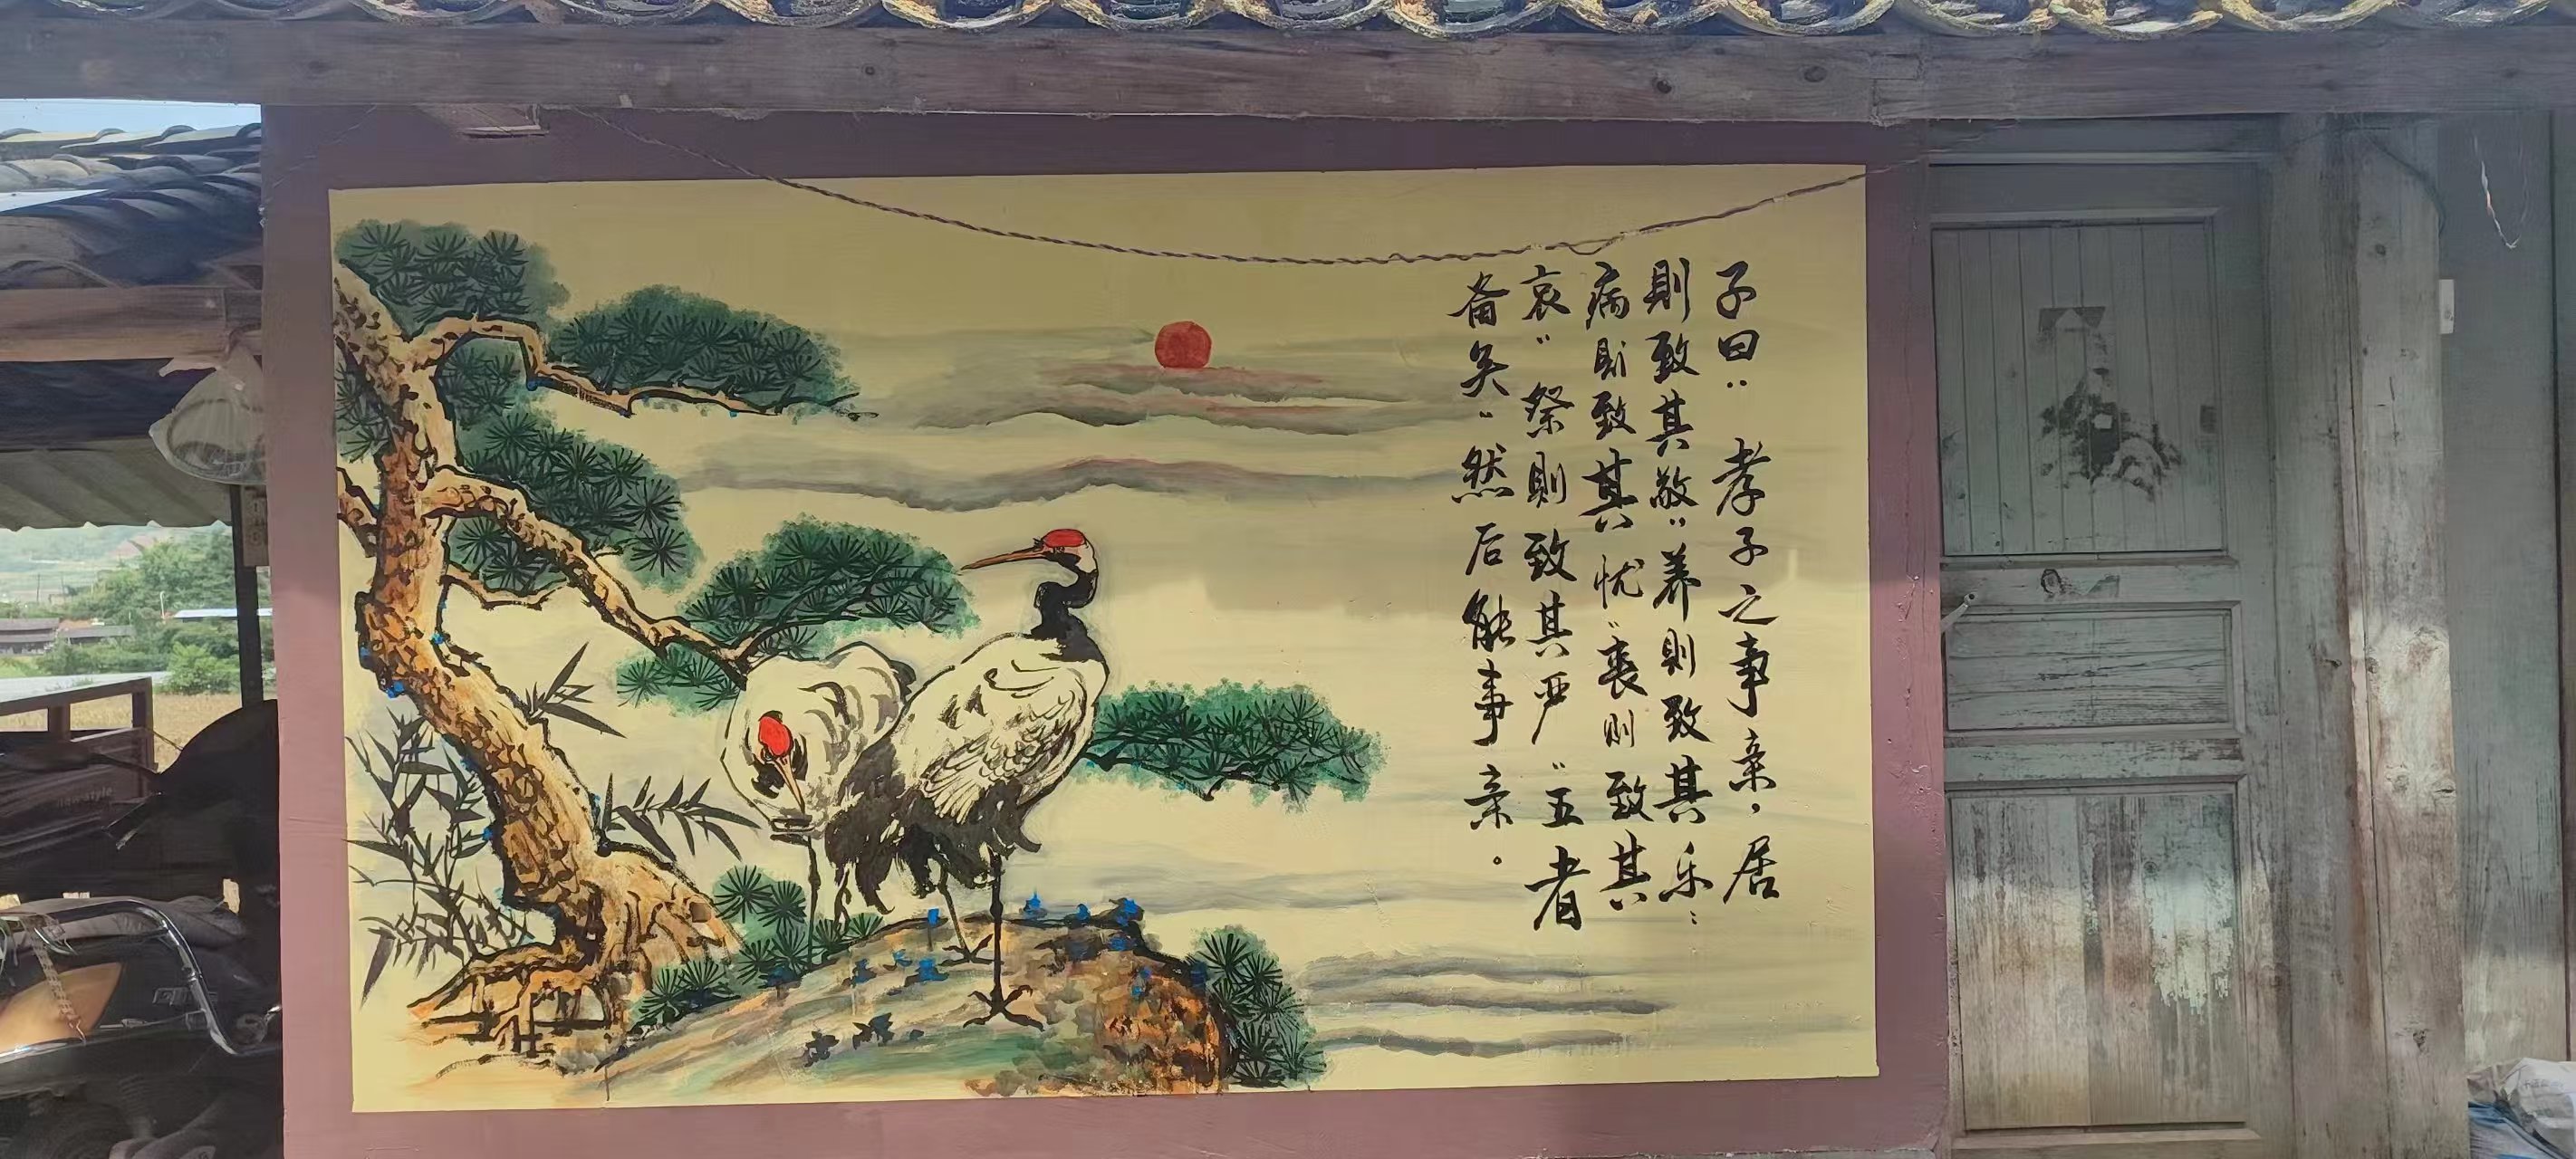 子曰：孝子之事亲，居
則致其敬：养则致其乐：
病则致其忧：丧则致其
哀：祭則致其严：五者
备矣：然后能事亲。